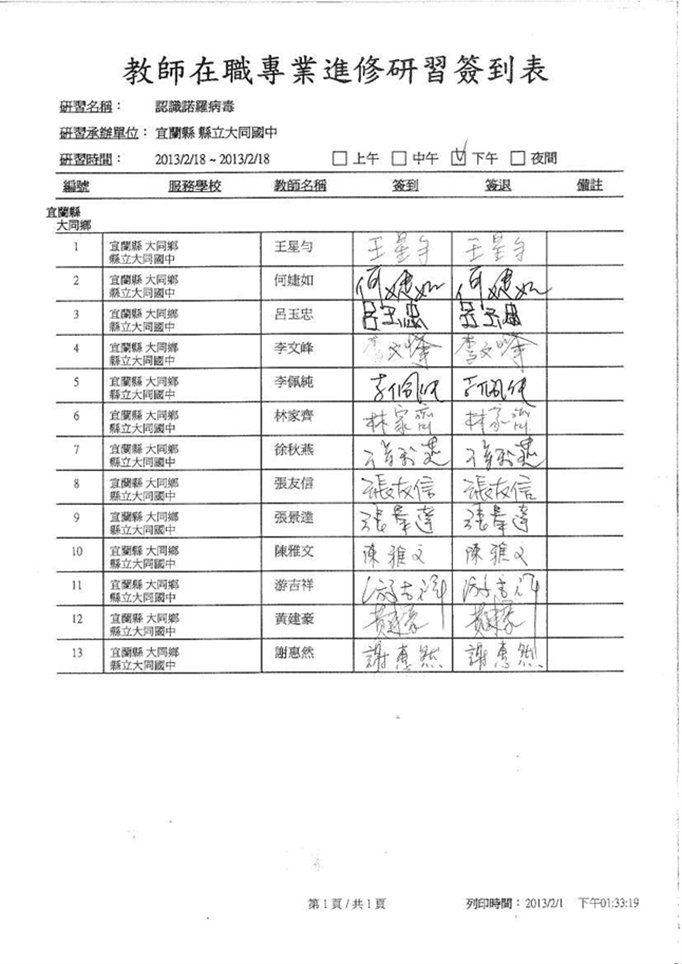 教師在職專業進修研習簽到表
研習名稱： 認識諾羅病毒
研習承辦單位： 宜蘭縣 縣立大同國中
研習時間： 2013/2/18 ~ 2013/2/18 □ 上午 □ 中午 ☑ 下午 □ 夜間
編號 服務學校 教師名稱 簽到 簽退 備註
宜蘭縣
大同鄉
1 宜蘭縣 大同鄉 王星勻 王星勻 王星勻
縣立大同國中
2 宜蘭縣 大同鄉 何婕如 何婕如 何婕如
縣立大同國中
3 宜蘭縣 大同鄉 呂玉忠 呂玉忠 呂玉忠
縣立大同國中
4 宜蘭縣 大同鄉 李文峰 李文峰 李文峰
縣立大同國中
5 宜蘭縣 大同鄉 李佩純 李佩純 李佩純
縣立大同國中
6 宜蘭縣 大同鄉 林家齊 林家齊 林家齊
縣立大同國中
7 宜蘭縣 大同鄉 徐秋燕 徐秋燕 徐秋燕
縣立大同國中
8 宜蘭縣 大同鄉 張友信 張友信 張友信
縣立大同國中
9 宜蘭縣 大同鄉 張景達 張景達 張景達
縣立大同國中
10 宜蘭縣 大同鄉 陳雅文 陳雅文 陳雅文
縣立大同國中
11 宜蘭縣 大同鄉 游吉祥 游吉祥 游吉祥
縣立大同國中
12 宜蘭縣 大同鄉 黃建豪 黃建豪 黃建豪
縣立大同國中
13 宜蘭縣 大同鄉 謝惠然 謝惠然 謝惠然
縣立大同國中
第 1 頁 / 共 1 頁 列印時間：2013/2/1 下午01:33:19